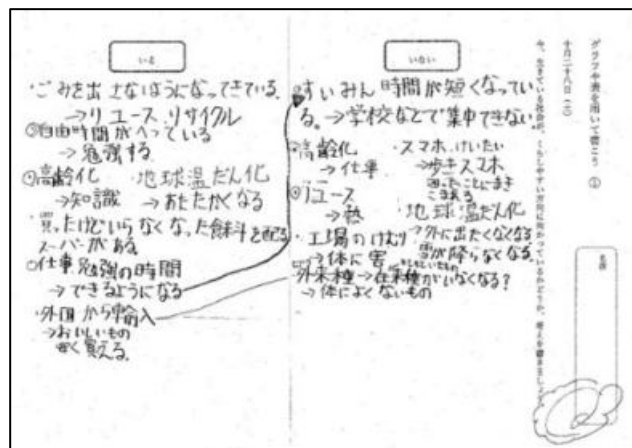 グラフや表を用いて書こう ①
十月二十八日（三）
今、生きている社会が、くらしやすい方向に向かっているかどうか、考えを書きましょう。
名前
いない
・すいみん時間が短くなってい
る。→学校などで集中できない。
高齢化
→仕事
・スマホ、けいたい
→歩きスマホ
リユース
→熱
・地球温だん化
→外に出たくなくなる
雪が降らなくなる。
・工場のけむり
→体に害
外来種→在来種がいなくなる？
→体によくないもの
いる
・ごみを出さないようになってきている。
→リユース、リサイクル
自由時間がへっている
→勉強する
高齢化
→知識
・地球温だん化
→あたたかくなる
・買ったけどいらなくなった食料を配る
スーパーがある。
仕事、勉強の時間
→できるようになる
・外国から輸入
→おいしいもの
安く買える。